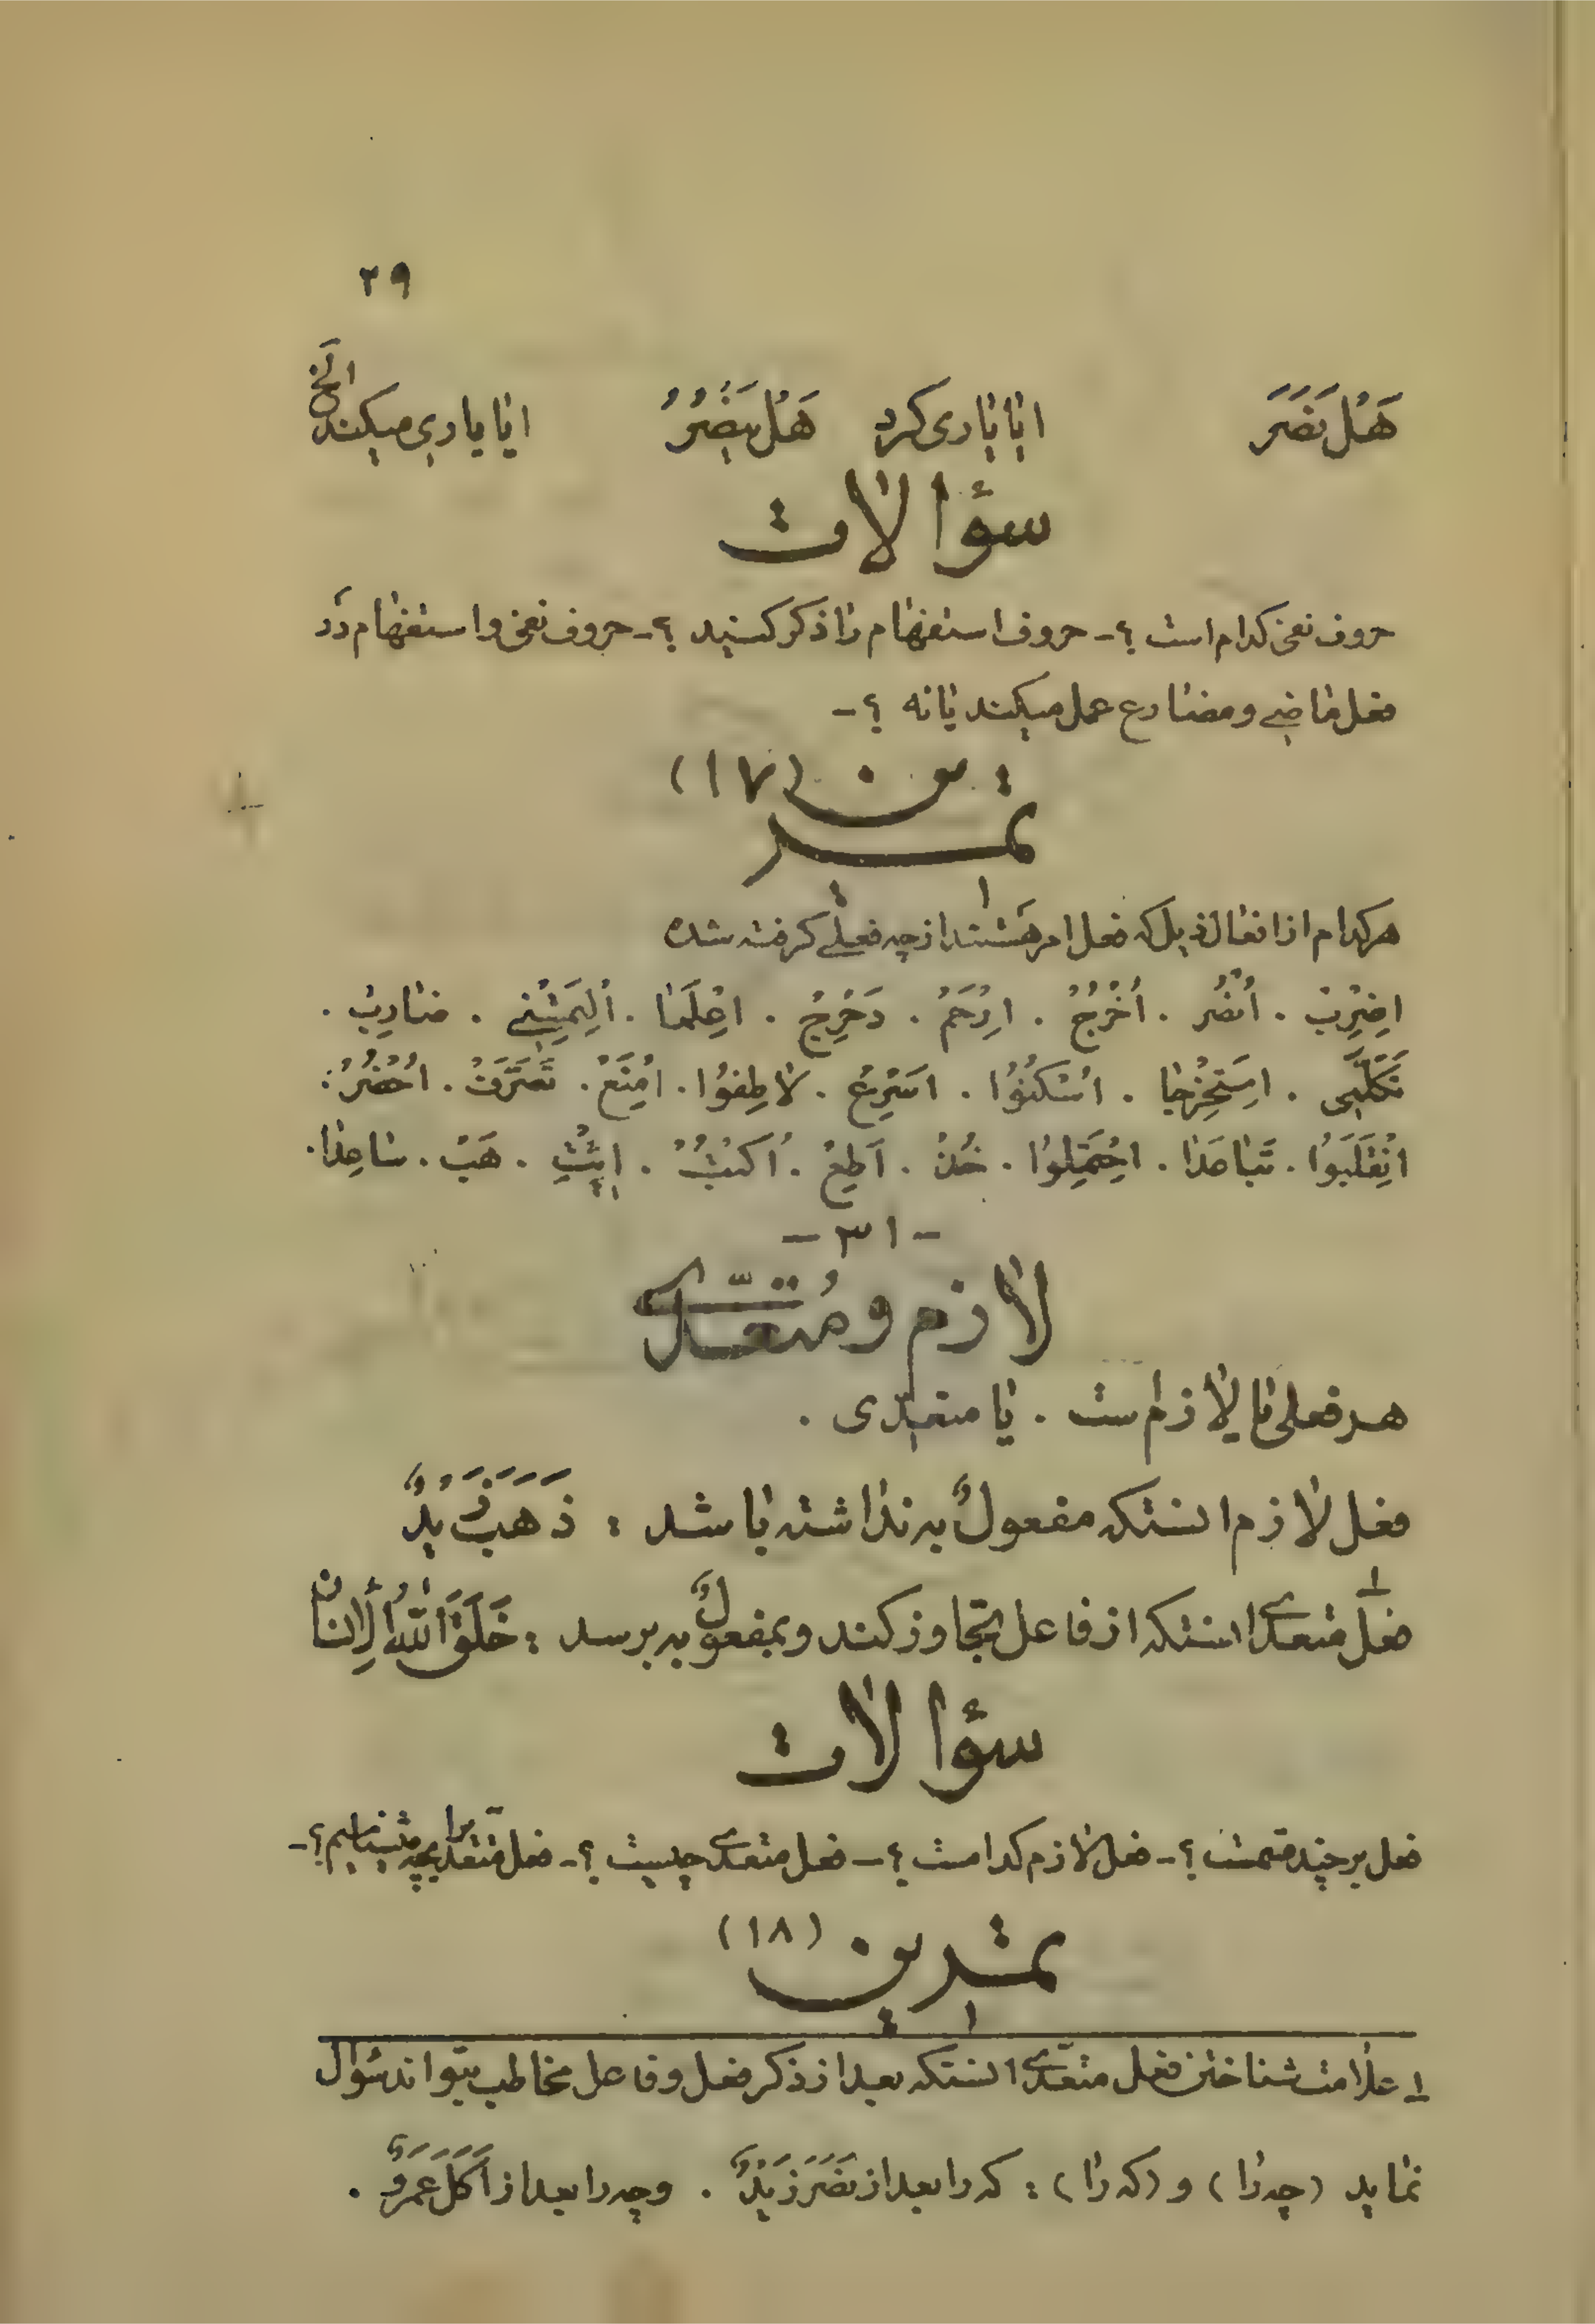 ۲۹
هَلْ نَصَرَ ایا یاری کرد هَلْ یَنْصُرُ ایا یاری میکند الخ
سؤالات
حروف نفی کدام است ؟ـ حروف استفهام را ذکر کنید ؟ـ حروف نفی و استفهام در
فعل ماضی و مضارع عمل میکند یا نه ؟ـ
تمرین (۱۷)
هر کدام از افعال ذیل که فعل امر هستند از چه فعلی گرفته شده
اِضْرِبْ . اُنْصُر . اُخْرُجْ . اِرْحَمْ . دَحْرِجْ . اِعْلَمٰا . ضٰارِبْ .
اِسْتَخْرِجٰا . اُسْکُنُوا . اَسْرِعْ . لاٰطِفُوا . اِمْنَعْ . تَصَرَّفْ . اُحْضُرْ .
اِنْقَلِبُوا . تَبٰاعَدٰا . اِحْتَمِلُوا . خُذْ . اَطِعْ . اُکْتُبْ . . هَبْ . سٰاعِدٰا .
ـ ۳۱ ـ
لازم و مُتعدّی
هر فعلی یا لازم است . یا متعدّی .
فعل لازم انستکه مفعولٌ به نداشته باشد : ذَهَبَ زَیْدٌ
فعل متعدی ۱ انستکه از فاعل تجاوز کند و بمفعولٌ به برسد : خَلَقَ اللّٰهُ الْاِنْسٰانَ
سؤالات
فعل بر چند قسمت ؟ـ فعل لازم کدامست ؟ـ فعل متعدی چیست ؟ـ فعل متعدی را بچه میشناسیم ؟ـ
تمرین (۱۸)
۱ـ علامت شناختن فعل متعدّی انستکه بعد از ذکر فعل و فاعل مخاطب بتواند سؤال
نماید (چه را) و (که را) : که را بعد از نَصَرَ زَیْدٌ . و چه را بعد از اَکَلَ عَمْروٌ .